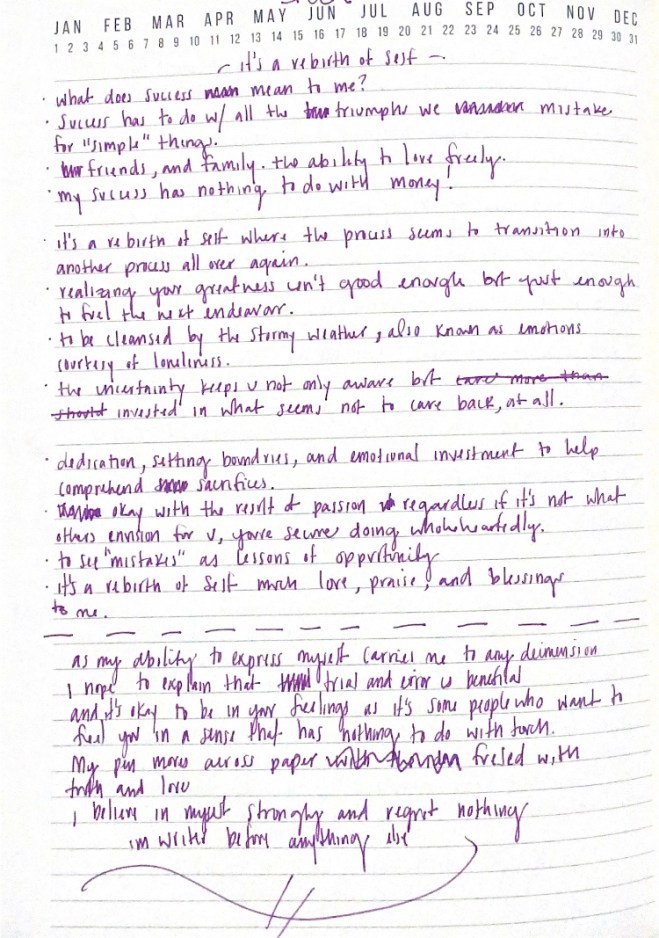 JAN FEB MAR APR MAY JUN JUL AUG SEP OCT NOV DEC
1 2 3 4 5 6 7 8 9 10 11 12 13 14 15 16 17 18 19 20 21 22 23 24 25 26 27 28 29 30 31
it's a rebirth of self
· what does success mean to me?
· success has to do w/ all the triumphs we mistake
for "simple" things.
· friends, and family. the ability to love freely.
· my success has nothing to do with money!
· it's a rebirth of self where the process seems to transition into
another process all over again.
· realizing your greatness isn't good enough but just enough
to fuel the next endeavor.
· to be cleansed by the stormy weather, also known as emotions
courtesy of loneliness.
· the uncertainty keeps u not only aware but care more than
should invested in what seems not to care back, at all.
· dedication, setting boundries, and emotional investment to help
comprehend sacrifices.
· okay with the result of passion regardless if it's not what
others envision for u, you're secure doing wholeheartedly.
· to see "mistakes" as lessons of opportunity
· it's a rebirth of self much love, praise, and blessings
to me.
as my ability to express myself carries me to any deimension
I hope to explain that trial and error is benefital
and it's okay to be in your feelings as it's some people who want to
feel you in a sense that has nothing to do with touch.
My pen moves across paper fueled with
truth and love
I believe in myself strongly and regret nothing
im writer before anything else